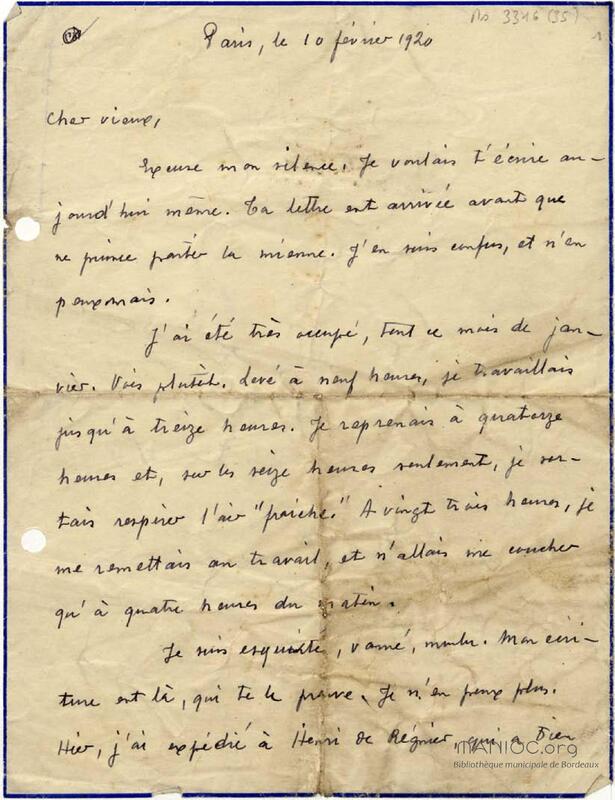 Ms 3346 (35)
1
Paris, le 10 février 1920
Cher vieux,
Excuse mon silence. Je voulais t'écrire au-
jourd'hui même. Ta lettre est arrivée avant que
ne puisse partir la mienne. J'en suis confus, et n'en
peux mais.
J'ai été très occupé, tout ce mois de jan-
vier. Vois plutôt. Levé à neuf heures, je travaillais
jusqu'à treize heures. Je reprenais à quatorze
heures et, sur les seize heures seulement, je sor-
tais respirer l'air "fraîche." A vingt trois heures, je
me remettais au travail, et n'allais me coucher
qu'à quatre heures du matin.
Je suis esquinté, vanné, moulu. Mon écri-
ture est là, qui te le prouve. Je n'en peux plus.
Hier, j'ai expédié à Henri de Régnier, qui a bien
MANIOC.org
Bibliothèque municipale de Bordeaux